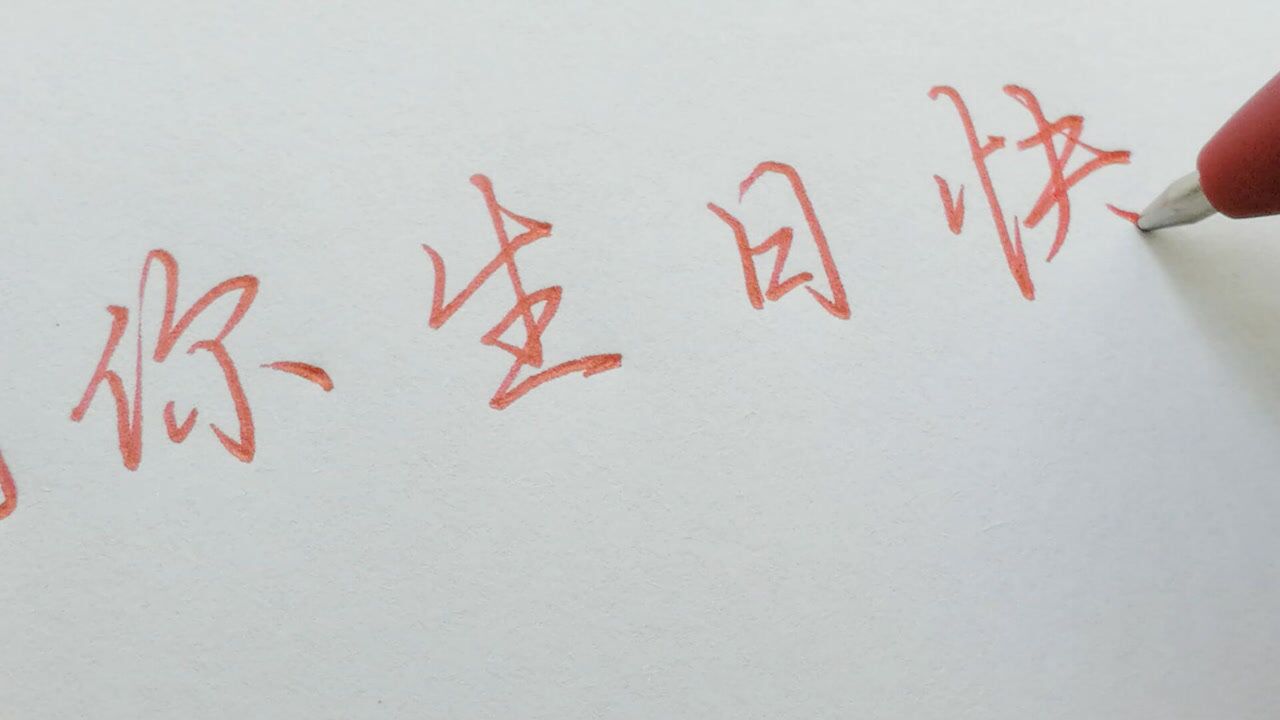 你生日快